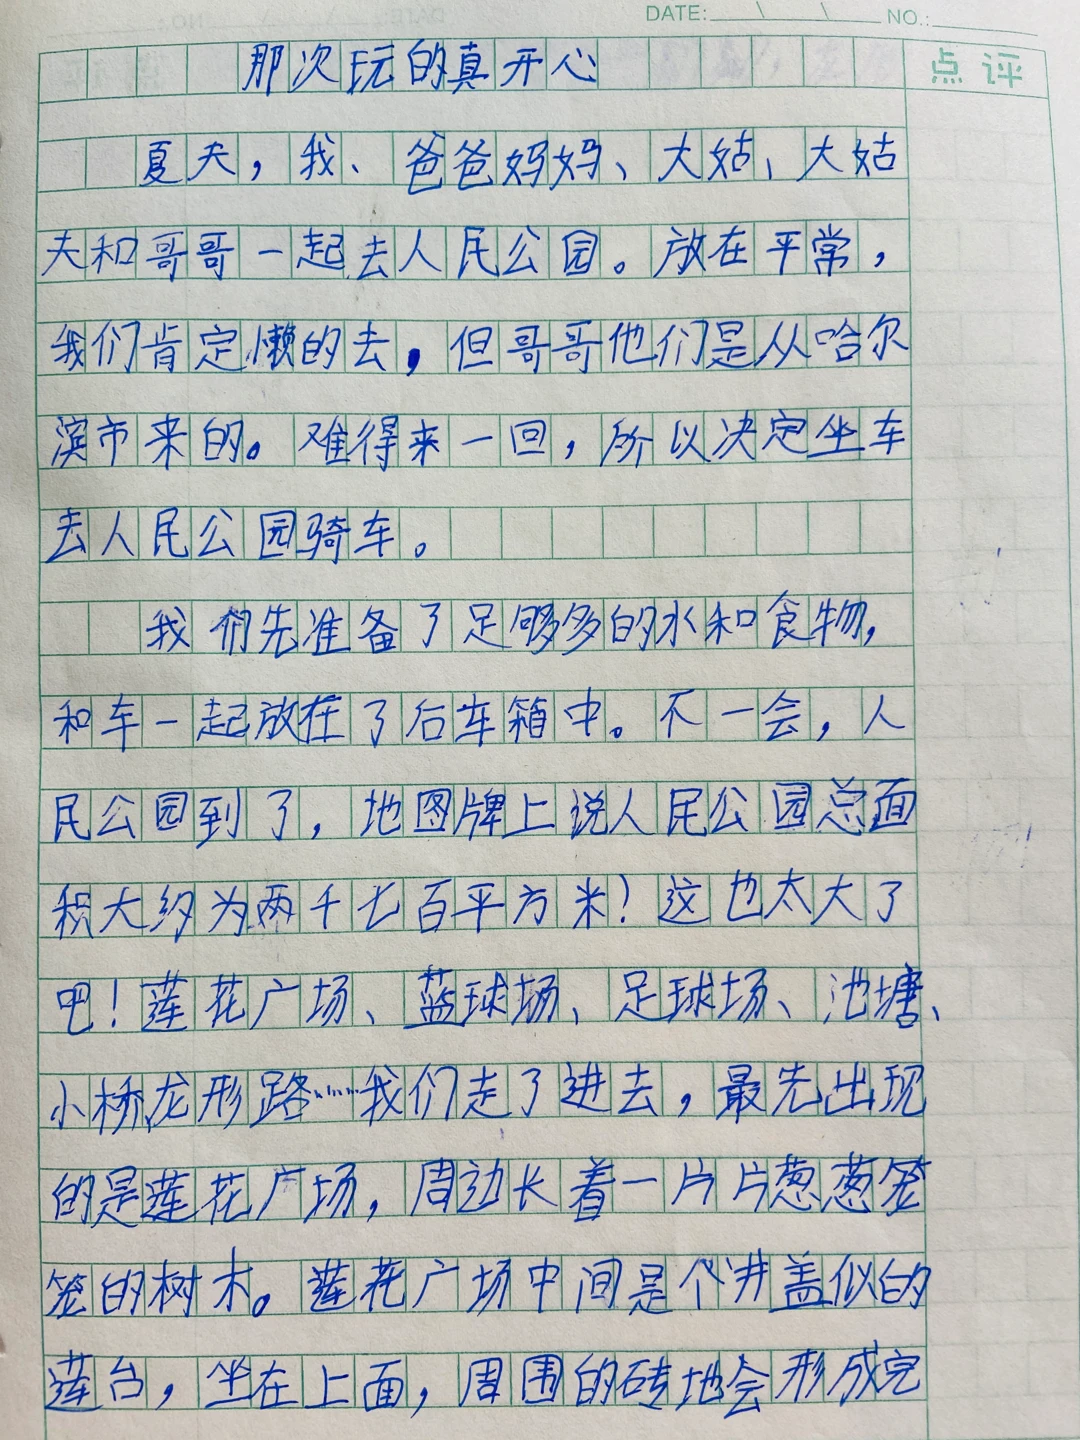 DATE: NO.:
点评
那次玩的真开心
夏天，我、爸爸妈妈、大姑、大姑
夫和哥哥一起去人民公园。放在平常，
我们肯定懒的去，但哥哥他们是从哈尔
滨市来的。难得来一回，所以决定坐车
去人民公园骑车。
我们先准备了足够多的水和食物，
和车一起放在了后车箱中。不一会，人
民公园到了，地图牌上说人民公园总面
积大约为两千七百平方米！这也太大了
吧！莲花广场、蓝球场、足球场、池塘、
小桥龙形路……我们走了进去，最先出现
的是莲花广场，周边长着一片片葱葱笼
笼的树木。莲花广场中间是个井盖似的
莲台，坐在上面，周围的砖地会形成完